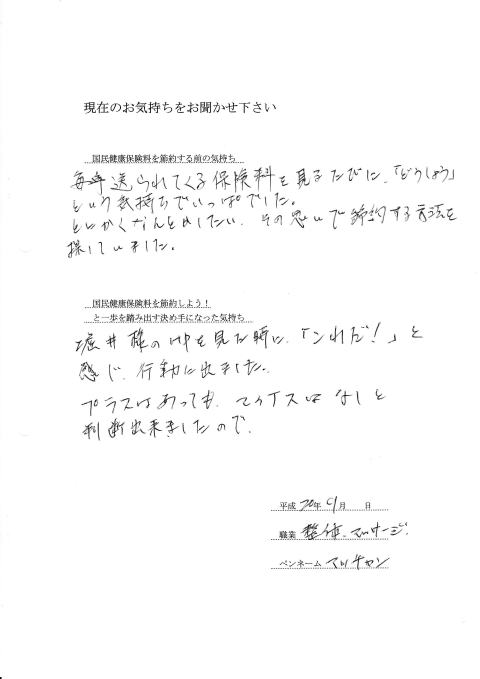 現在のお気持ちをお聞かせ下さい
国民健康保険料を節約する前の気持ち
毎年送られてくる保険料を見るたびに、「どうしよう」
という気持ちでいっぱいでした。
とにかくなんとかしたい、その思いで節約する方法を
探していました。
国民健康保険料を節約しよう!
と一歩を踏み出す決め手になった気持ち
堀井様のHPを見た時に、「これだ!」と
感じ、行動に出ました。
プラスはあっても、マイナスはなしと
判断出来ましたので、
平成 20年 月 日
職業 整体、マッサージ.
ペンネーム マッチャン